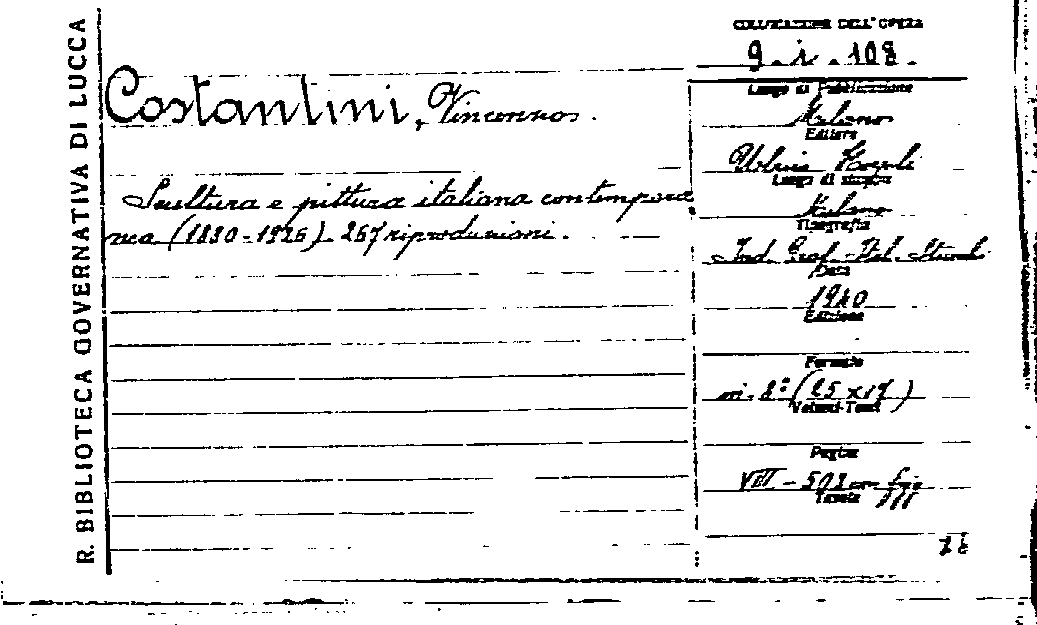 R. BIBLIOTECA GOVERNATIVA DI LUCCA
COLLOCAZIONE DELL'OPERA
9. i. 108.
Costantini, Vincenzo.
Scultura e pittura italiana contempora
nea (1880-1926). 267 riproduzioni.
Luogo di Pubblicazione
Milano
Editore
Ulrico Hoepli
Luogo di stampa
Milano
Tipografia
Ind. Graf. Ital. Stucchi
Data
1940
Edizione
Formato
in. 8º (25 x 17)
Volumi-Tomi
Pagine
VIII - 503 con fig.
Tavole